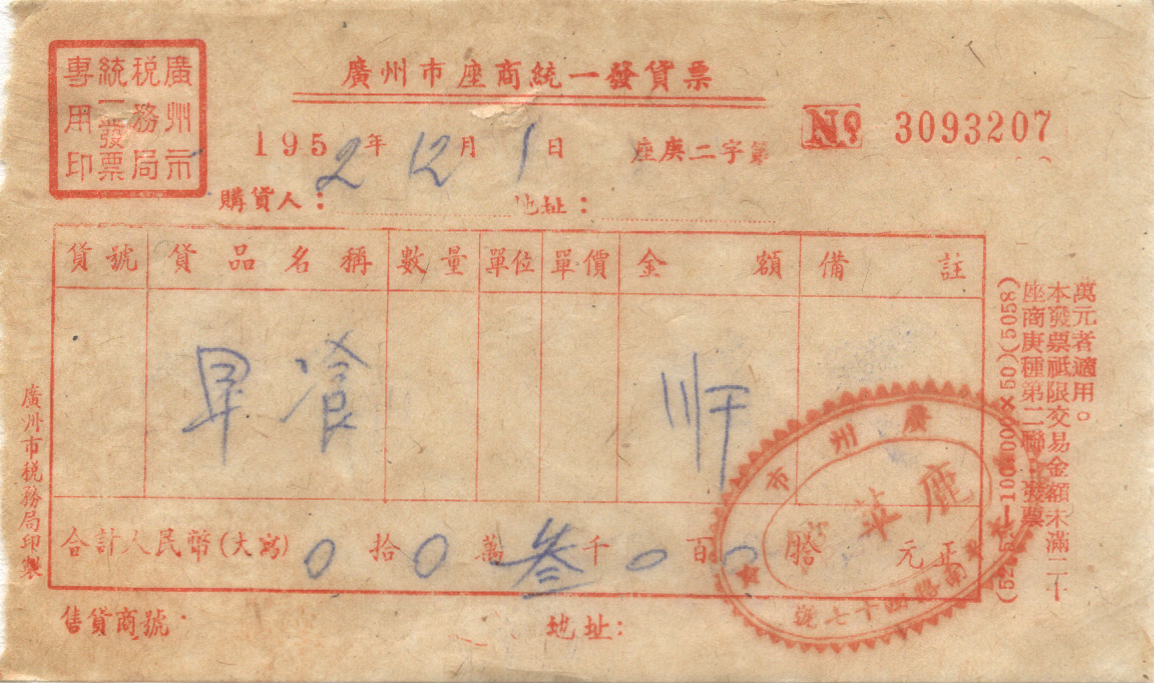 廣州市
稅務局
統一發票
專用印
廣州市座商統一發貨票
1952年12月1日
座庚二字第
№ 3093207
購貨人：
地址：
貨號 貨品名稱 數量 單位 單價 金額 備註
早飡 〣千
合計人民幣(大寫) 0拾0萬叁千0百0拾 元正
售貨商號
地址：
廣州市税務局印製
萬元者適用。
本發票祗限交易金額未滿二十
座商庚種第二聯：發票
廣州市
鹿華
南路四十七號